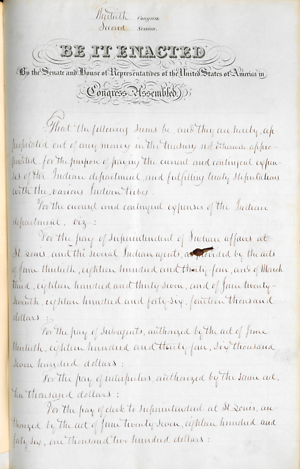 Thirtieth Congress
Second Session.
BE IT ENACTED
By the Senate and House of Representatives of the United States of America in
Congress Assembled,
That the following sums be, and they are hereby, ap-
propriated out of any money in the treasury not otherwise appro-
priated, for the purpose of paying the current and contingent expen-
ses of the Indian department, and fulfilling treaty stipulations
with the various Indian tribes.
For the current and contingent expenses of the Indian
department, viz:
For the pay of superintendent of Indian affairs at
St. Louis and the several Indian agents, as provided by the acts
of June thirtieth, eighteen hundred and thirty four, and of March
third, eighteen hundred and thirty seven, and of June twenty-
seventh, eighteen hundred and forty-six, fourteen thousand
dollars:
For the pay of subagents, authorized by the act of June
thirtieth, eighteen hundred and thirty four, six thousand
seven hundred dollars:
For the pay of interpreters, authorized by the same act,
ten thousand dollars:
For the pay of clerk to superintendent at St. Louis, au-
thorized by the act of June twenty seven, eighteen hundred and
forty six, one thousand two hundred dollars: